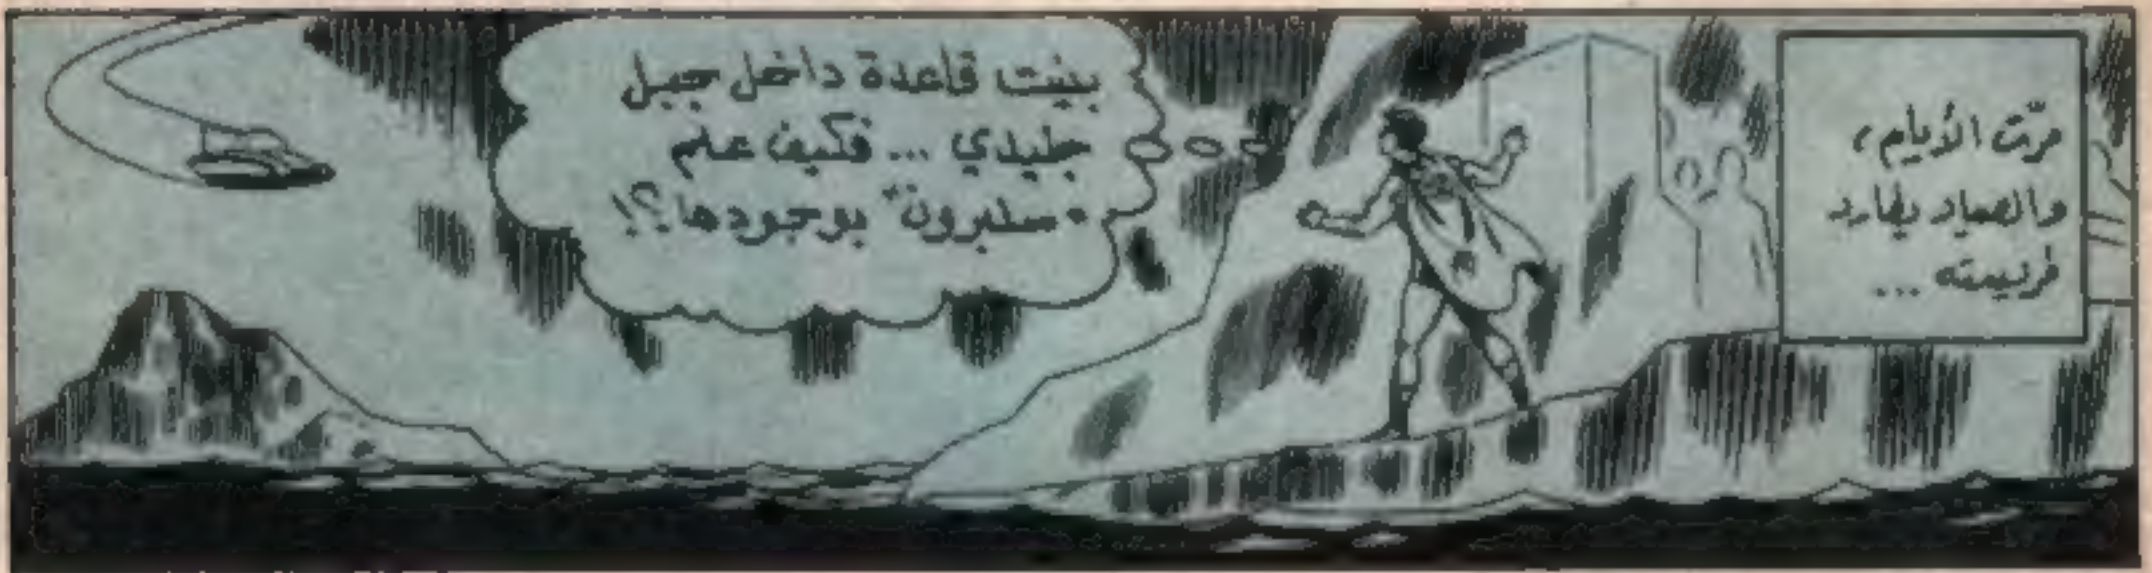 مرّت الأيام،
والصياد يطارد
فريسته ...
بنيت قاعدة داخل جبل
جليدي ... فكيف علم
"سنبرون" بوجودها؟!